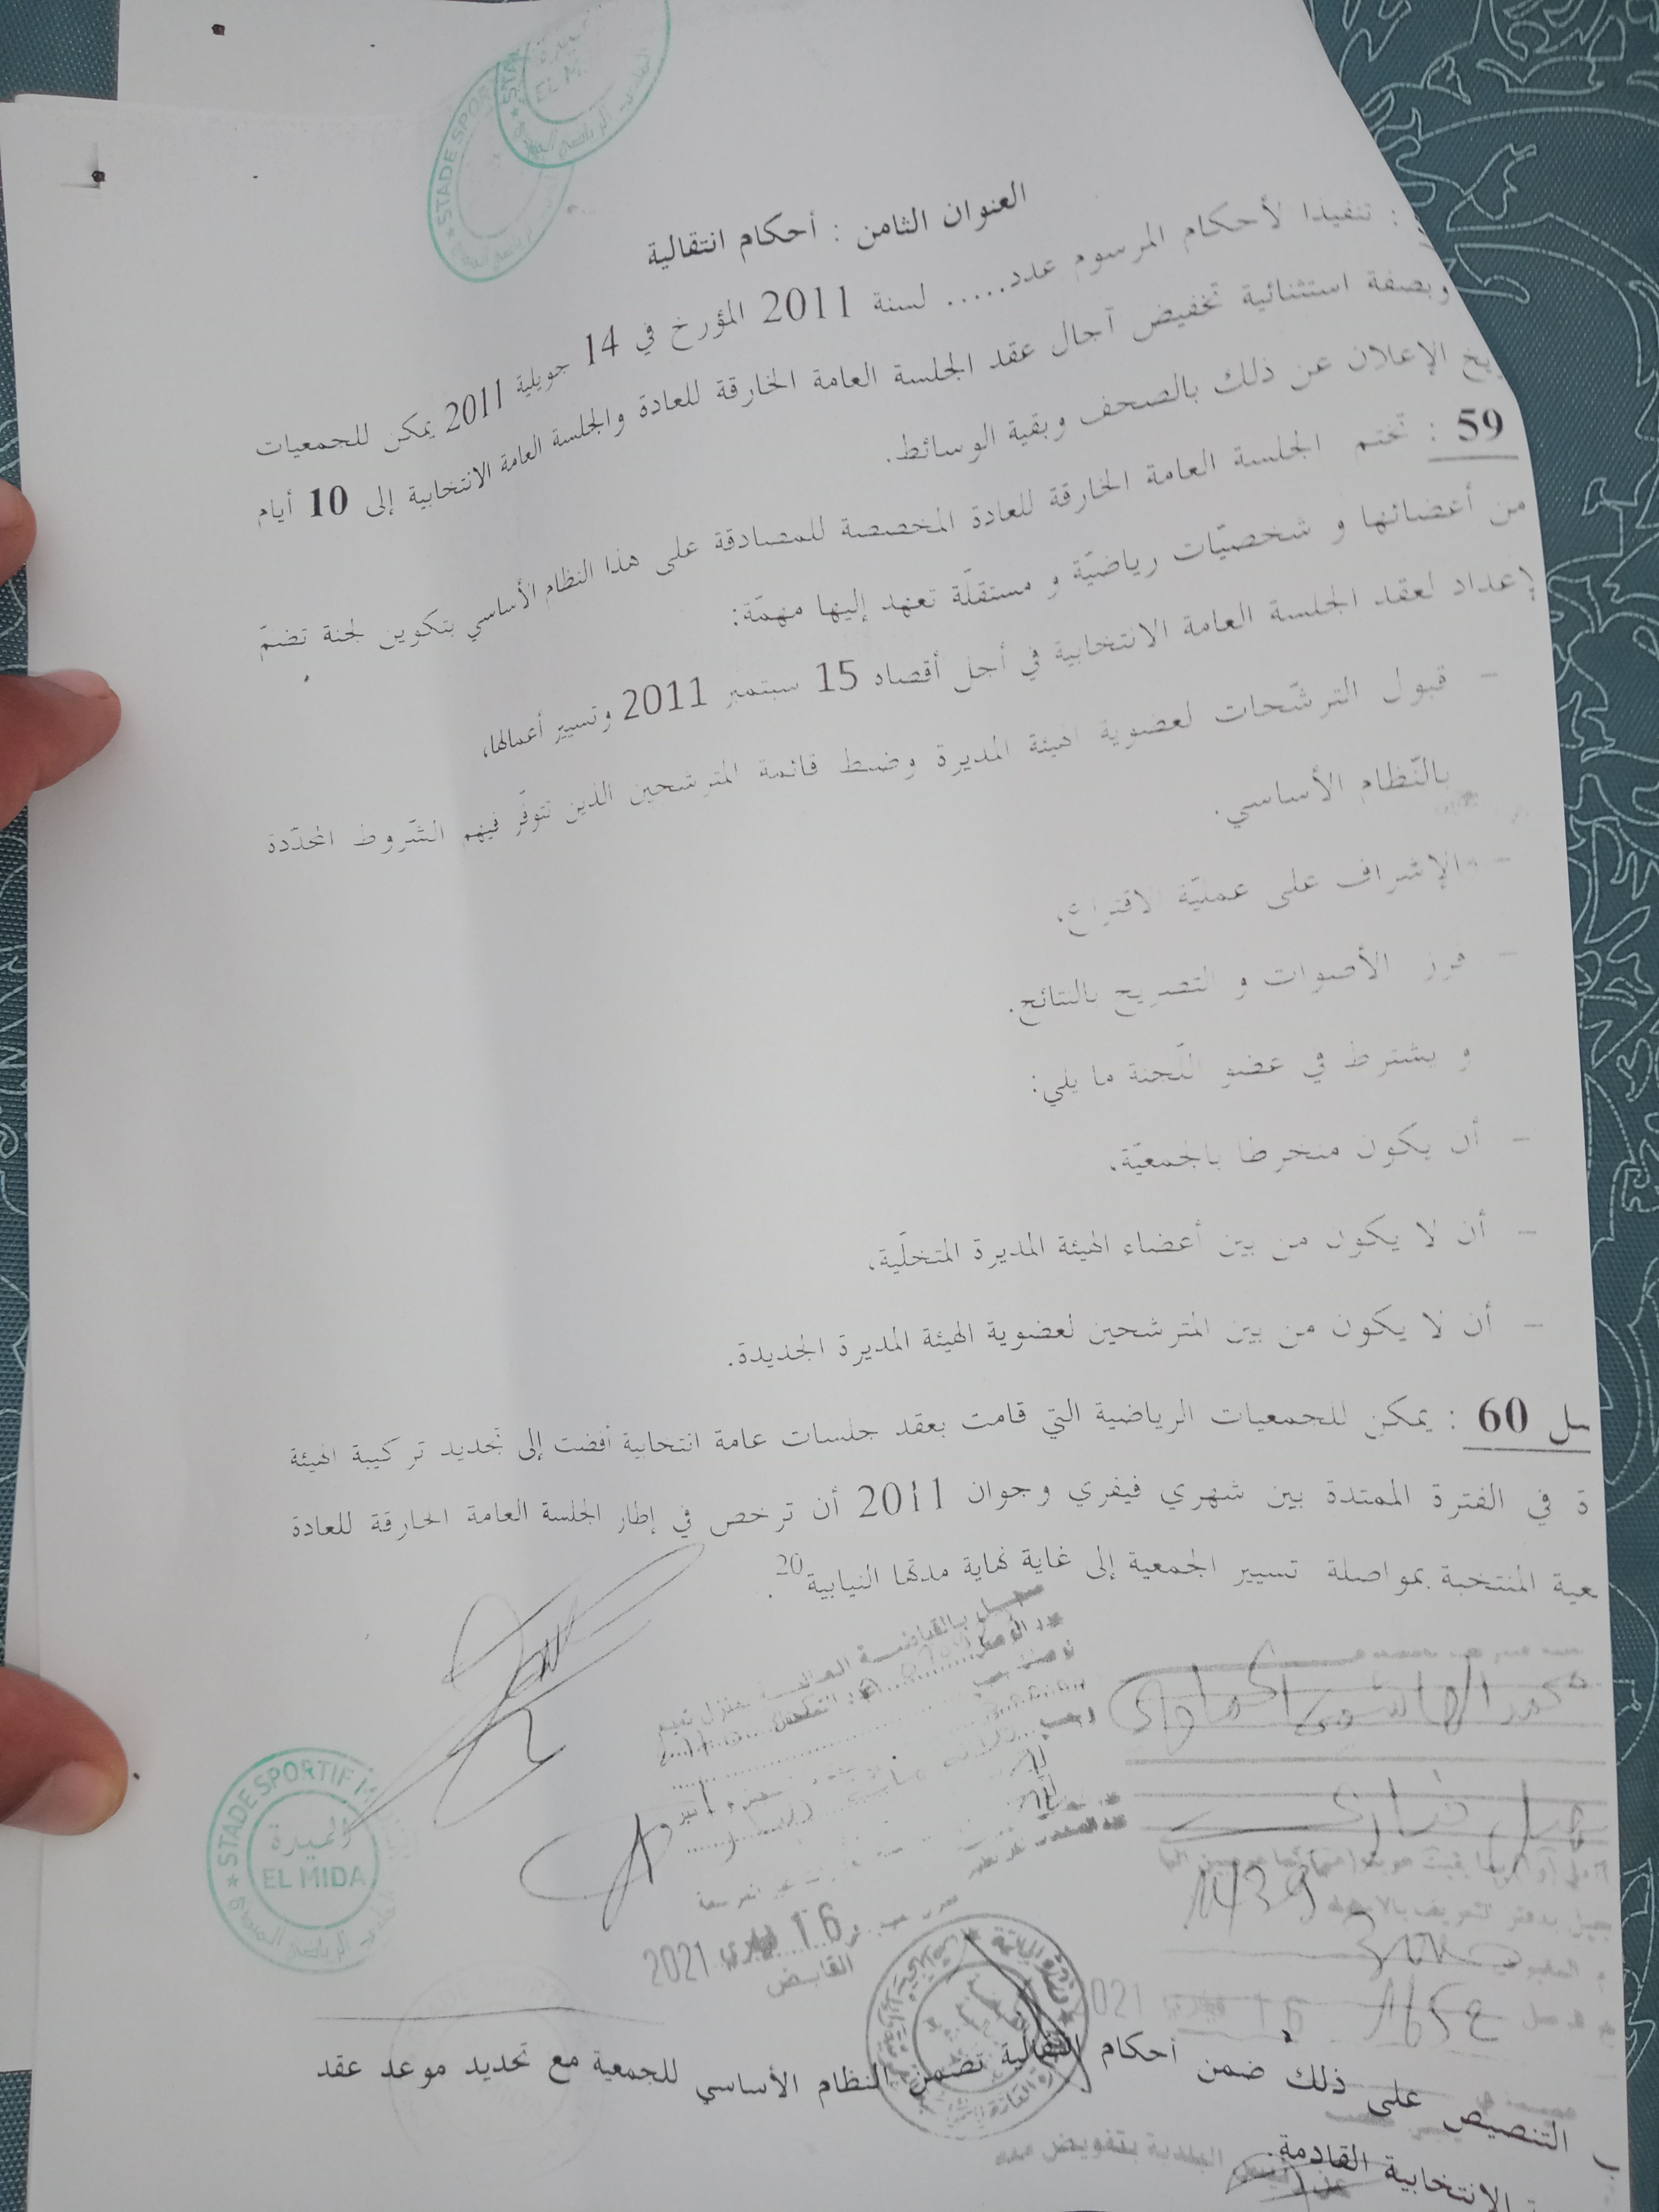 STADE SPOR
EL MI
العنوان الثامن : أحكام انتقالية
: تنفيذا لأحكام المرسوم عدد..... لسنة 2011 المؤرخ في 14 جويلية 2011 يمكن للجمعيات
وبصفة استثنائية تخفيض آجال عقد الجلسة العامة الخارقة للعادة والجلسة العامة الانتخابية إلى 10 أيام
الإعلان عن ذلك بالصحف وبقية الوسائط.
59 : تختم الجلسة العامة الخارقة للعادة المخصصة للمصادقة على هذا النظام الأساسي بتكوين لجنة تضمّ
من أعضائها و شخصيّات رياضيّة و مستقلّة تعهد إليها مهمّة:
لإعداد لعقد الجلسة العامة الانتخابية في أجل أقصاه 15 سبتمبر 2011 وتسيير أعمالها،
– قبول الترشّحات لعضوية الهيئة المديرة وضبط قائمة المترشحين الذين تتوفّر فيهم الشّروط المحدّدة
بالنّظام الأساسي.
– الإشراف على عمليّة الاقتراع،
– فرز الأصوات و التصريح بالنتائج.
و يشترط في عضو اللّجنة ما يلي:
– أن يكون منخرطا بالجمعيّة،
– أن لا يكون من بين أعضاء الهيئة المديرة المتخلّية،
– أن لا يكون من بين المترشحين لعضوية الهيئة المديرة الجديدة.
سل 60 : يمكن للجمعيات الرياضية التي قامت بعقد جلسات عامة انتخابية أفضت إلى تجديد تركيبة الهيئة
ة في الفترة الممتدة بين شهري فيفري وجوان 2011 أن ترخص في إطار الجلسة العامة الخارقة للعادة
عية المنتخبة بمواصلة تسيير الجمعية إلى غاية نهاية مدتها النيابية20.
STADE SPORTIF
الميدة
EL MIDA
16 2021
القابض
16 2021
ب التنصيص على ذلك ضمن أحكام انتقالية تضمن النظام الأساسي للجمعية مع تحديد موعد عقد
الانتخابية القادمة.
البلدية بتفويض منه